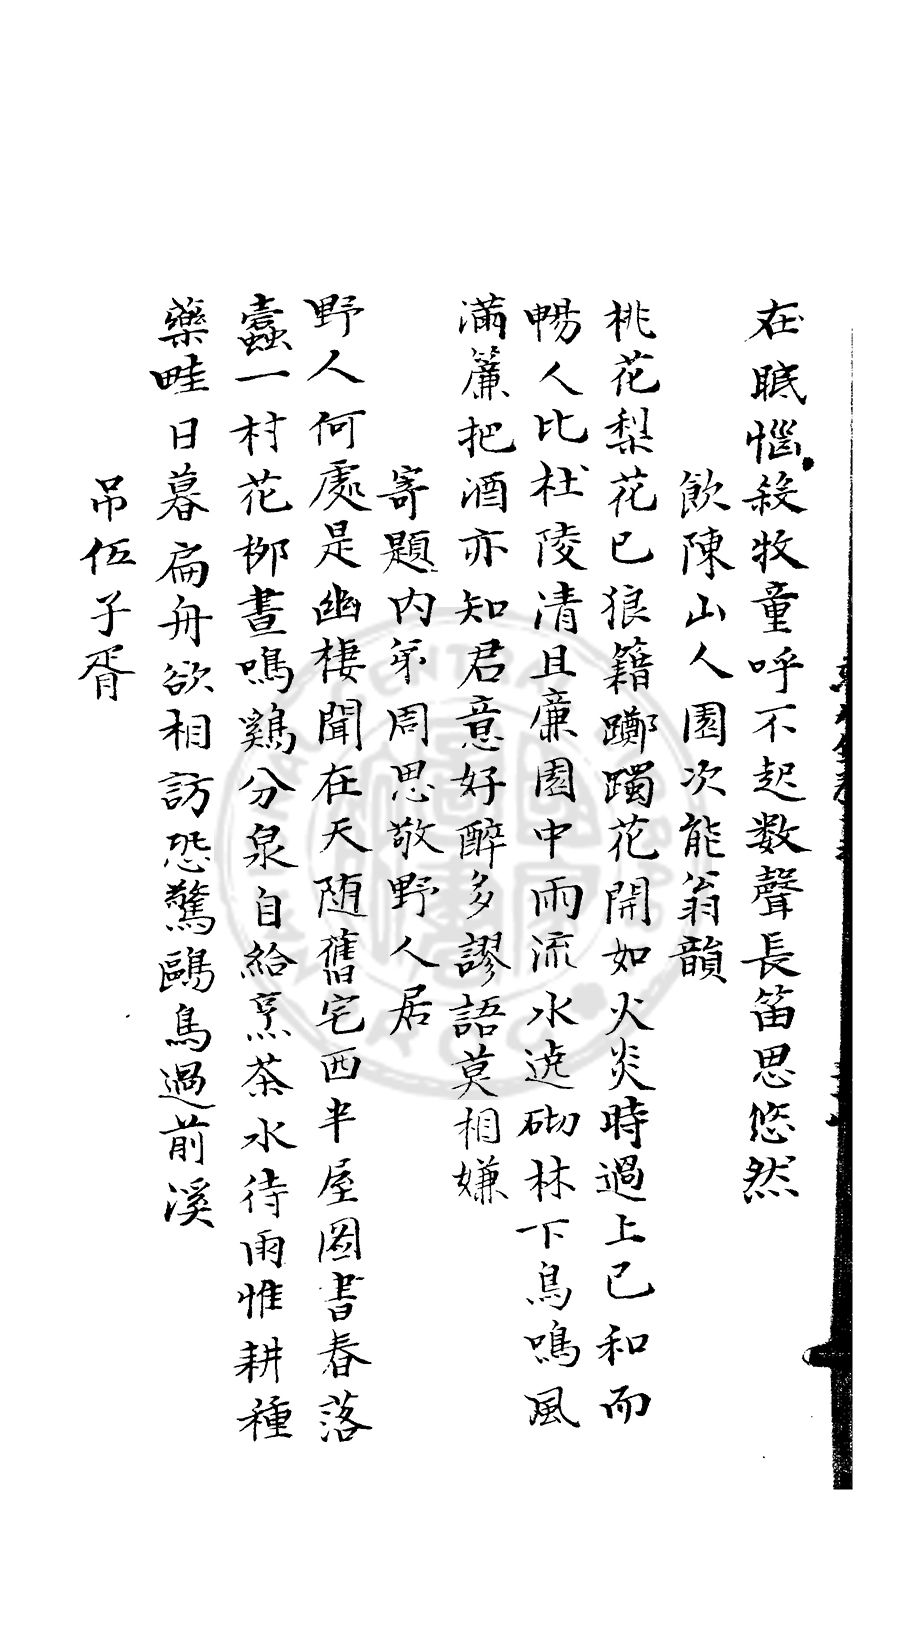 在眂惱殺牧童呼不起数聲長笛思悠然
飲陳山人園次能翁韻
桃花梨花已狼籍躑躅花開如火炎時過上已和而
暢人比杜陵清且廉園中雨流水遶砌林下鳥鳴風
滿簾把酒亦知君意好醉多謬語莫相嫌
寄題内弟周思敬野人居
野人何處是幽棲聞在天随舊宅西半屋圖書春落
蠧一村花栁晝鳴鷄分泉自給烹茶水待雨惟耕種
藥畦日暮扁舟欲相訪恐驚鷗鳥過前溪
吊伍子胥